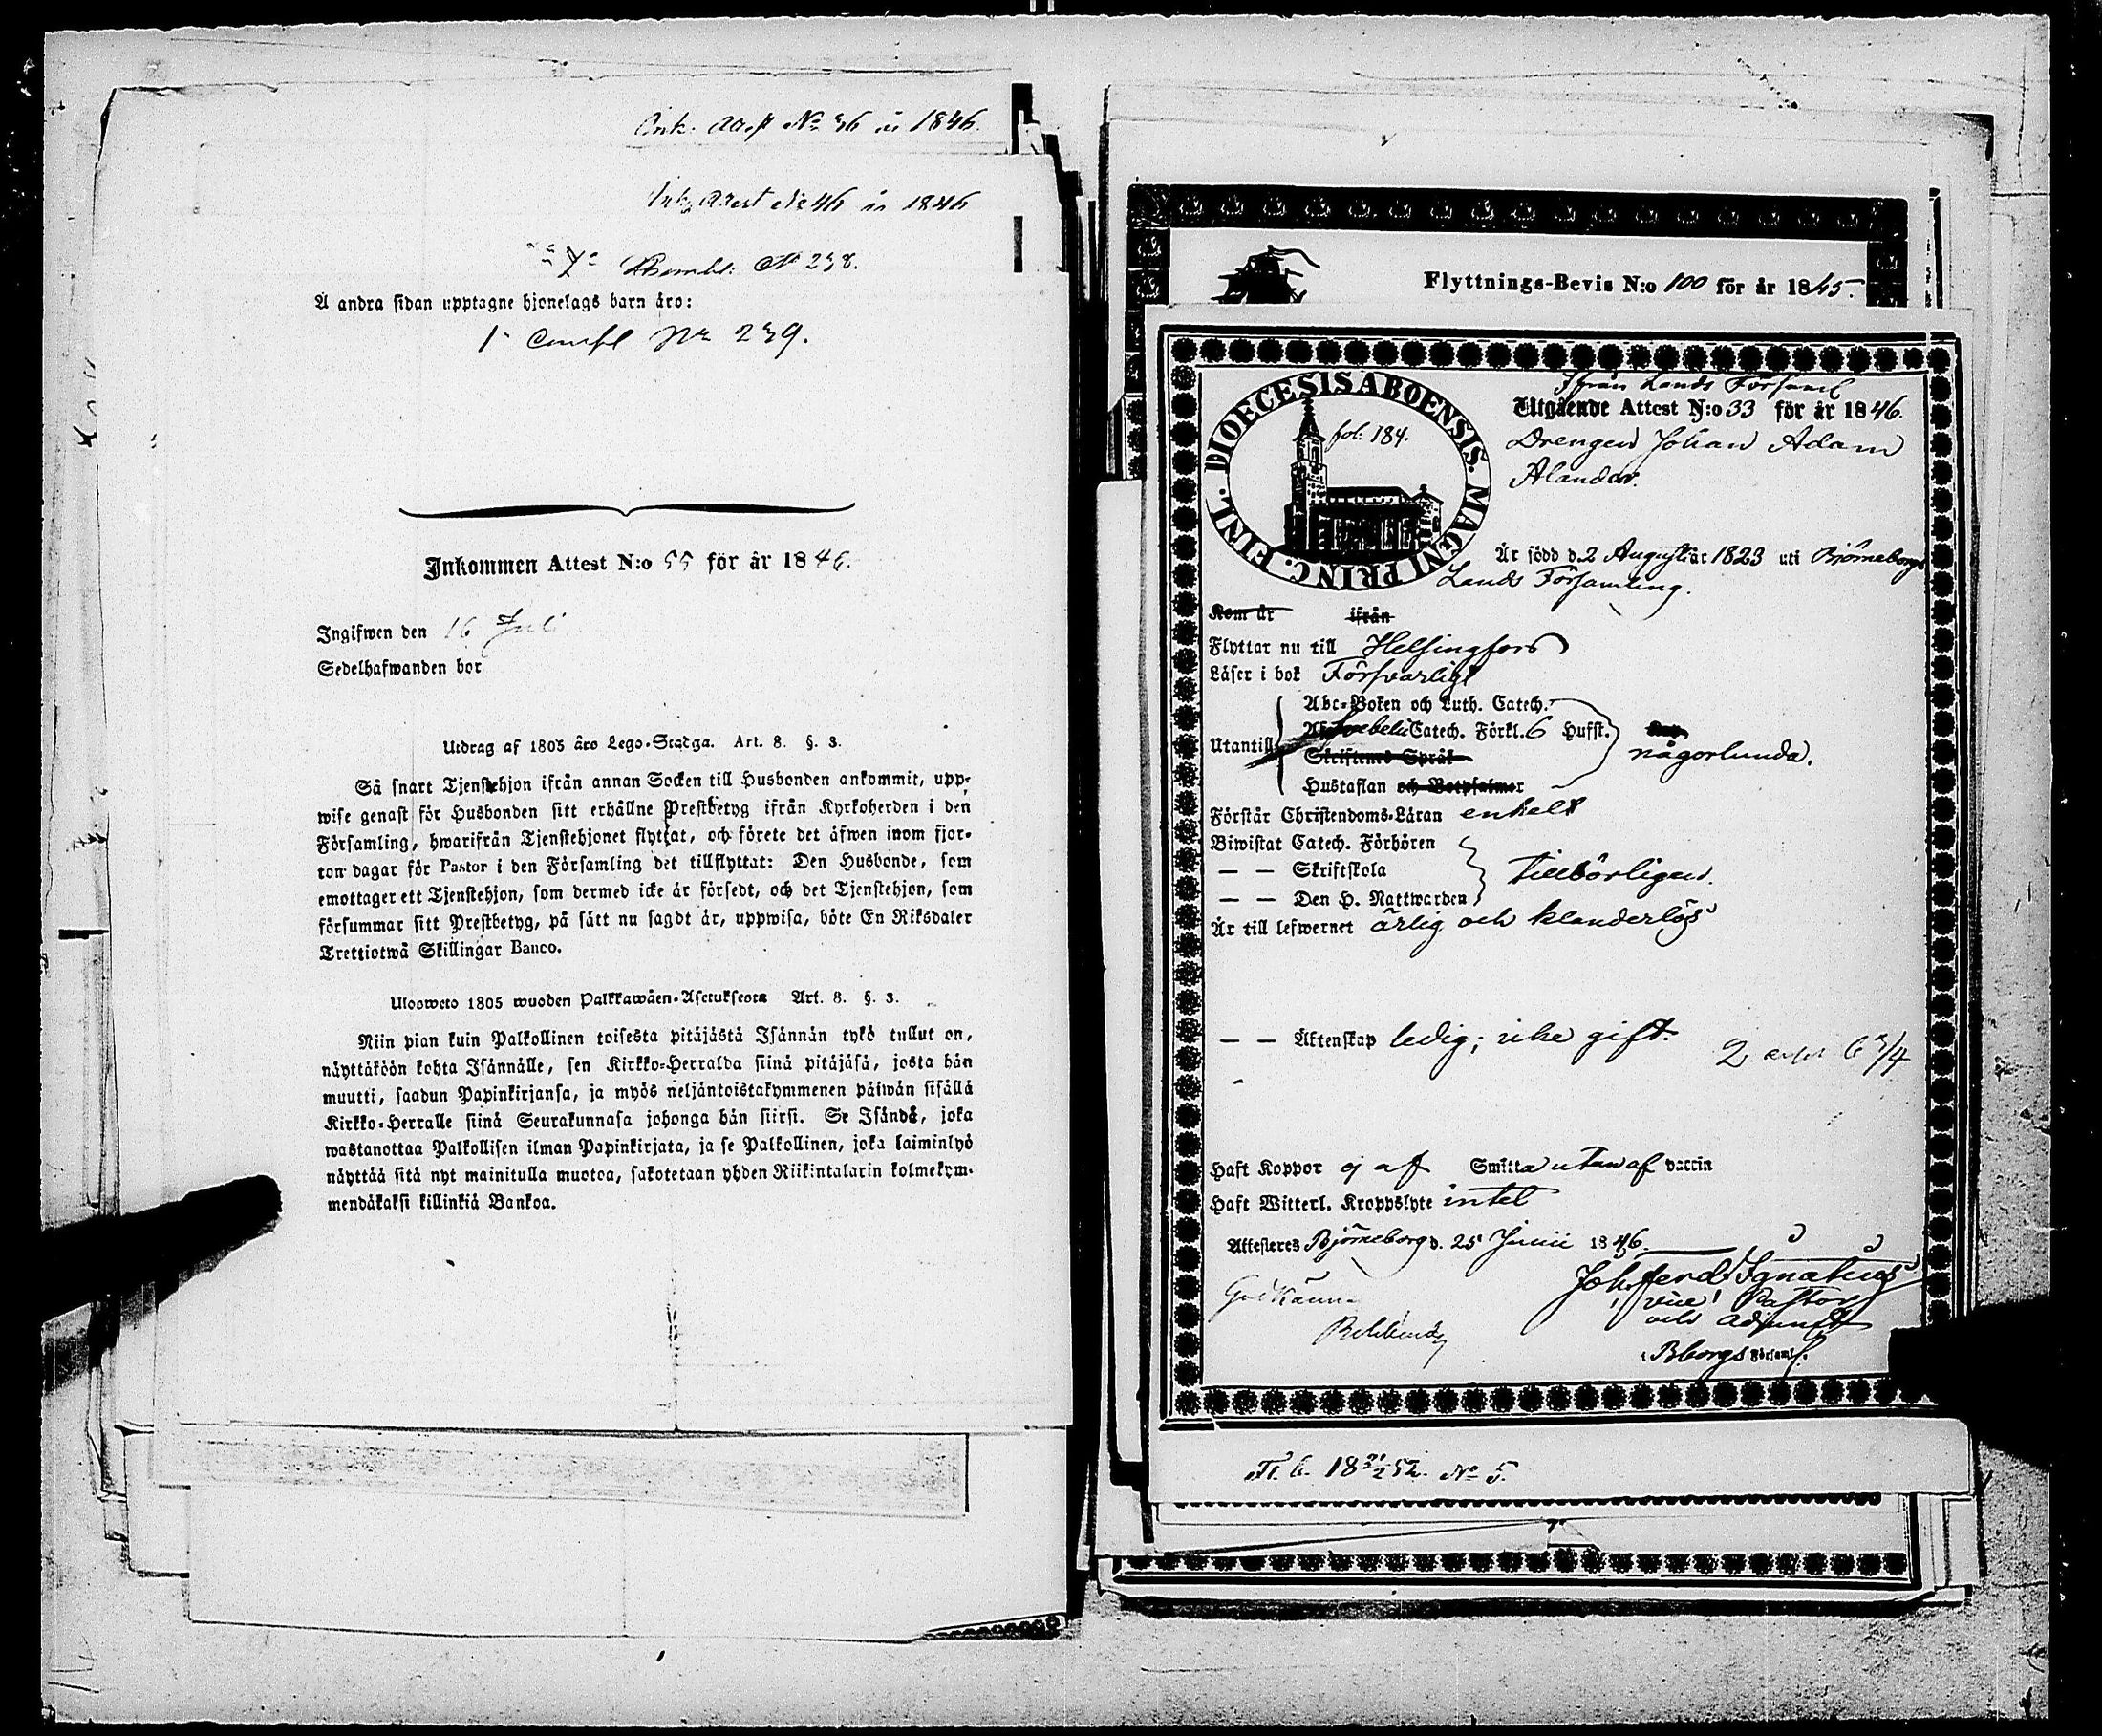 Ink. Attest No 36 år 1846.
Ink. Attest No 46 år 1846
No 238.
Å andra sidan upptagne hjonelags barn äro:
No 239.
Inkommen Attest N:o 55 för år 1846.
Ingifwen den 16 Juli
Sedelhafwanden bor
Utdrag af 1805 års Lego-Stadga. Art. 8. §. 3.
Så snart Tjenstehjon ifrån annan Socken till Husbonden ankommit, upp-
wise genast för Husbonden sitt erhållne Prestbetyg ifrån Kyrkoherden i den
Församling, hwarifrån Tjenstehjonet flyttat, och förete det äfwen inom fjor-
ton dagar för Pastor i den Församling det tillflyttat: Den Husbonde, som
emottager ett Tjenstehjon, som dermed icke är försedt, och det Tjenstehjon, som
försummar sitt Prestbetyg, på sätt nu sagdt är, uppwisa, böte En Riksdaler
Trettiotwå Skillingar Banco.
Ulosweto 1805 wuoden Palkkawäen-Asetuksesta Art. 8. §. 3.
Niin pian kuin Palkollinen toisesta pitäjästä Isännän tykö tullut on,
näyttäköön kohta Isännälle, sen Kirkko-Herralda siinä pitäjäsä, josta hän
muutti, saadun Papinkirjansa, ja myös neljäntoistakymmenen päiwän sisällä
Kirkko-Herralle siinä Seurakunnasa johonga hän siirsi. Se Isändä, joka
wastanottaa Palkollisen ilman Papinkirjata, ja se Palkollinen, joka laiminlyö
näyttää sitä nyt mainitulla muotoa, sakotetaan yhden Riikintalarin kolmekym-
mendäkaksi killinkiä Bankoa.
Flyttnings-Bevis N:o 100 för år 1845.
Ifrån Lands Församl
Utgående Attest N:o 33 för år 1846.
DIOECESIS ABOENSIS. MAGNI PRINC. FINL.
fol: 184.
Drengen Johan Adam
Alander.
Är född d. 2 Augusti år 1823 uti Björneborgs
Lands Församling.
Kom år ifrån
Flyttar nu till Helsingfors
Läser i bok Försvarligt
Abc-Boken och Luth. Catech.
Utantill Svebelii Catech. Förkl. 6 Hufst. någorlunda.
Skriftenes Språk
Hustaflan och Botpsalmer
Förstår Christendoms-Läran enkelt
Biwistat Catech. Förhören
— — Skriftskola tillbörligen.
— — Den H. Nattwarden
Är till lefwernet ärlig och klanderlös
— — Äktenskap ledig; icke gift.
2 6 3/4
Haft Koppor ej af Smitta utan af vaccin
Haft Witterl. Kroppslyte intet
Attesteras Björneborg d. 25 Junii 1846.
Joh. Ferd. Ignatius
vice Pastor
och Adjunct
i Bborgs Församl.
Godkännes
Fl. b. No 5.